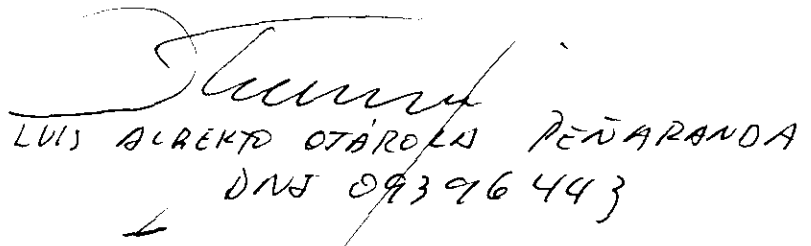 LUIS ALBERTO OTÁROLA PEÑARANDA
DNI 09396443